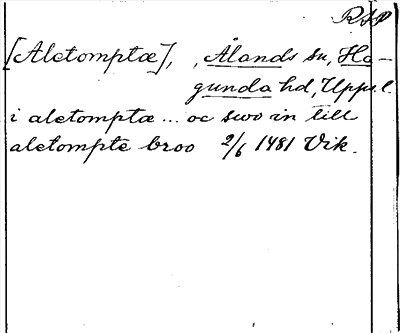 RSP
[Aletomptæ], Ålands sn, Ha-
gunda hd, Upps. l.
i aletomptæ ... oc swo in till
aletompte broo 2/6 1481 Vik.